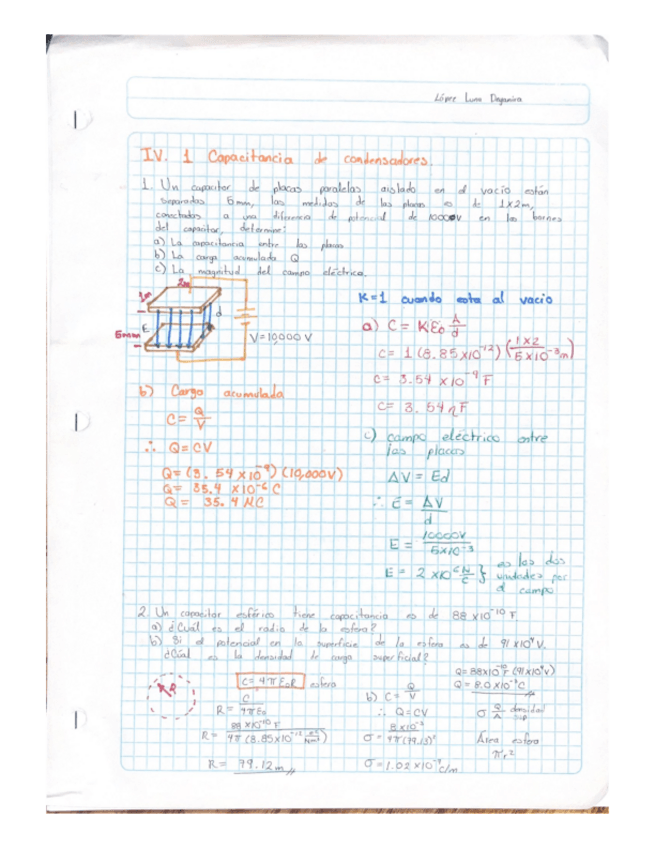 López Luna Dayanira
IV. 1 Capacitancia de condensadores.
1. Un capacitor de placas paralelas aislado en el vacío están
separadas 5mm, las medidas de las placas es de 1x2m,
conectados a una diferencia de potencial de 10000V en los bornes
del capacitor, determine:
a) La capacitancia entre las placas
b) La carga acumulada Q
c) La magnitud del campo eléctrico.
1m
2m
d
E
5mm
V=10,000 V
K=1 cuando esta al vacio
a) C = Kε₀ A/d
C = 1 (8.85x10⁻¹²) (1x2/5x10⁻³m)
C = 3.54 x10⁻⁹ F
C = 3.54 nF
b) Carga acumulada
C = Q/V
∴ Q=CV
Q=(3.54x10⁻⁹)(10,000V)
Q= 35.4 x10⁻⁶ C
Q= 35.4 MC
c) campo eléctrico entre
las placas
ΔV = Ed
∴ E = ΔV/d
E = 10000V/5x10⁻³
E = 2 x10⁶ N/C } es las dos
unidades per
el campo
2. Un capacitor esférico tiene capacitancia es de 88 x10⁻¹⁰ F
a) ¿Cuál es el radio de la esfera?
b) Si el potencial en la superficie de la esfera es de 91 x10⁴ V.
¿Cúal es la densidad de carga superficial?
R
C=4πε₀R esfera
R = C/4πε₀
R= 88x10⁻¹⁰ F/4π(8.85x10⁻¹² C²/Nm²)
R= 79.12m
b) C= Q/V
∴ Q=CV
σ= 8x10⁻³/4π(79.13)²
σ=1.02x10⁻⁷ c/m
Q=88x10⁻¹⁰ F (91x10⁴V)
Q= 8.0x10⁻³C
σ Q/A densidad sup
Área esfera
πr²